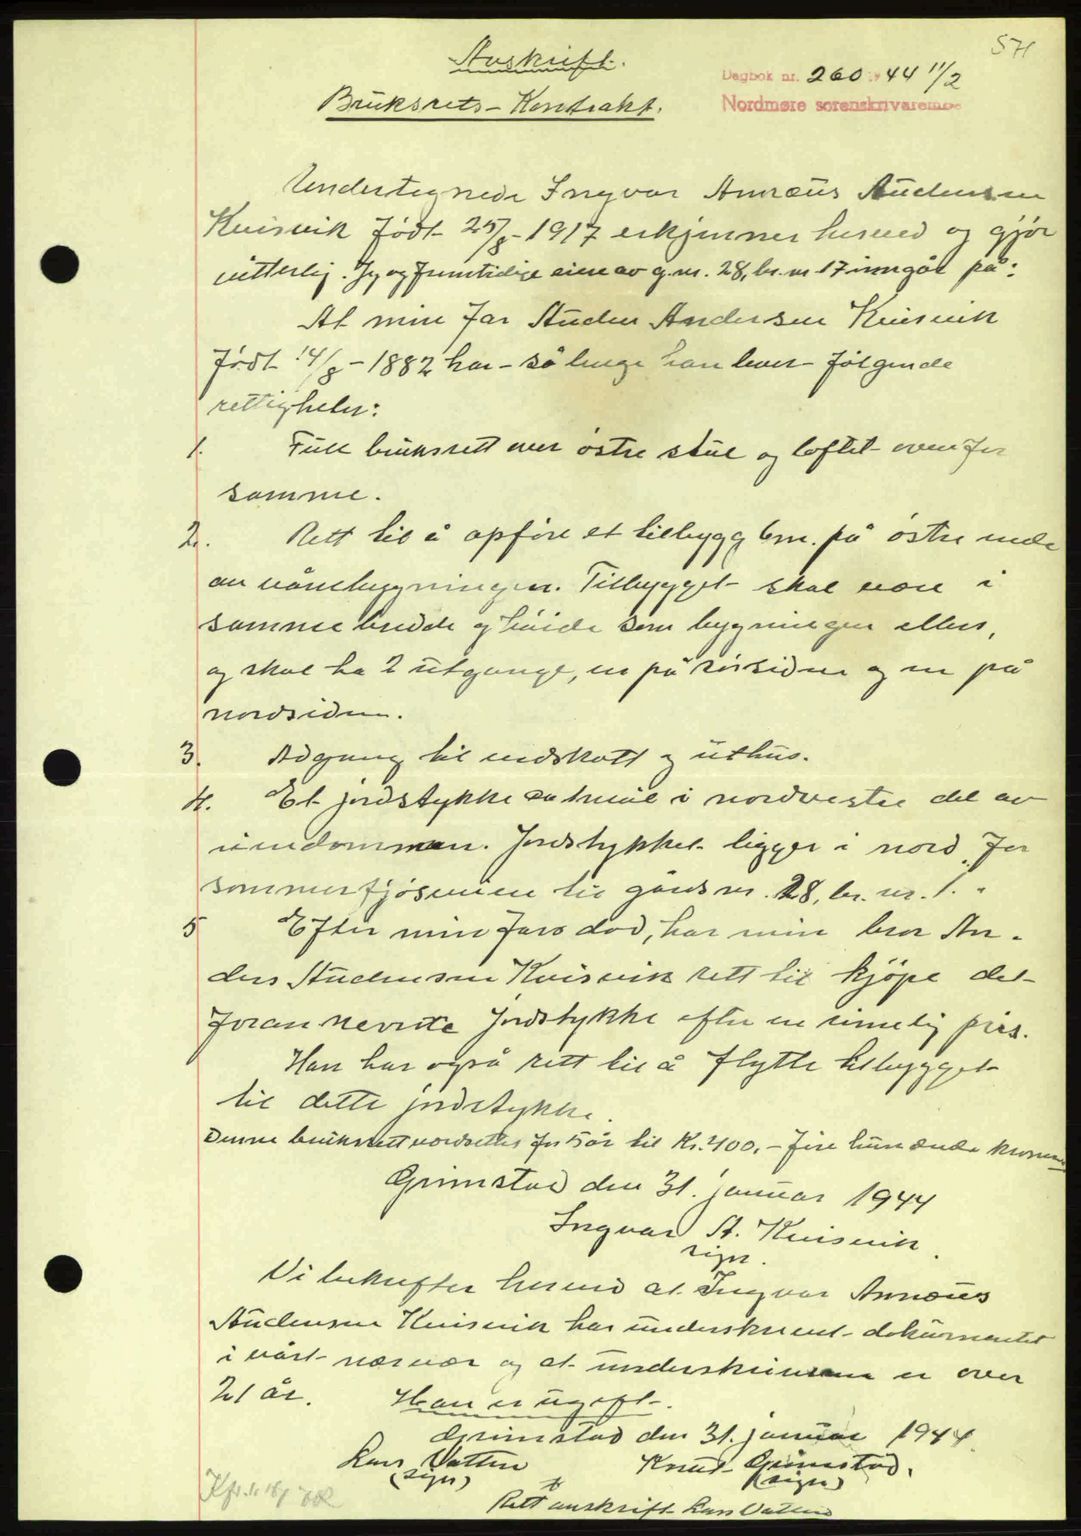 571
Avskrift.
Dagbok nr. 260 1944 11/2
Nordmøre sorenskrivarembe
Bruksrets-Kontrakt.
Undertegnede Ingvar Annæus Audensen
Kvisvik født 25/8-1917 erkjenner herved og gjør
vitterlig. Jeg og fremtidige eiere av g.nr. 28, br. nr 17 inngår på:
At min far Auden Andersen Kvisvik
født 14/8-1882 har - så lenge han lever - følgende
rettigheter:
1. Full bruksrett over östre stue og loftet ovenfor
samme.
2. Rett til å opføre et tilbygg 6m. på östre ende
av vånebygningen. Tilbygget skal være i
samme bredde og høide som bygningen ellers,
og skal ha 2 utgange, en på sörsiden og en på
nordsiden.
3. Adgang til vedskott og uthus.
4. Et jordstykke i nordvestre del av
eiendommen. Jordstykket ligger i nord for
sommerfjösveien til gårdsnr. 28, br. nr. 1.
5 Efter min fars död, har min bror An-
ders Audensen Kvisvik rett til kjöpe det
foran nevnte jordstykke efter en rimelig pris.
Han har også rett til å flytte tilbygget
til dette jordstykke.
Denne bruksrett verdsettes for 5 år til Kr. 400,- fire hundrede kroner
Grimstad den 31. januar 1944
Ingvar A. Kvisvik.
sign.
Vi bekrefter herved at Ingvar Annæus
Audensen Kvisvik har underskrevet dokumentet
i vårt nærvær og at underskriveren er over
21 år. Han er ugift.
Grimstad den 31. januar 1944.
Lars Vatten Knut Grimstad.
(sign) (sign)
Rett avskrift Lars Vatten